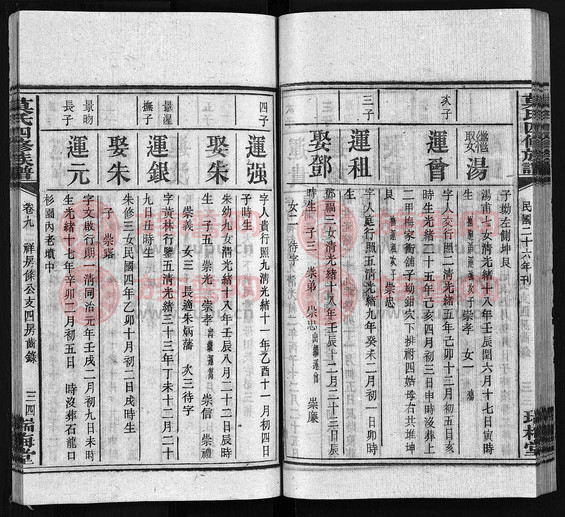 莫氏四修族譜
民國二十六年刊
子坳左側坤艮
湯
湯甫七女清光緒十八年壬辰閏六月十七日寅時
生 子崇孝 女一
次子
運會
字人亥行照二清光緒五年己卯十二月初五日亥
時生光緒二十五年己亥四月初三日申時沒葬上
艮
三子
運祖
字人庭行照五清光緒九年癸未二月初一日卯時
生
娶鄧
鄧福三女清光緒十八年壬辰十二月二十三日辰
時生 子三 崇弟 崇忠 崇廉
女二 待字
四子
運强
字人貴行照九清光緒十一年乙酉十一月初四日
子時生
娶朱
朱幼九女清光緒十八年壬辰八月二十日辰時
生 子五 崇光 崇孝 崇信 崇禮
崇義 女三 長適朱炳藩 次三待字
景湦
撫子
運銀
字黃林行鑒五清光緒三十三年丁未十二月二十
九日丑時生
娶朱
朱修三女民國四年乙卯十月初二日戌時生
子 崇嘉
景昉
長子
運元
字文啟行期一清同治元年壬戌二月初九日未時
生光緒十七年辛卯二月初五日 時沒葬石龍口
杉園內老墳中
莫氏四修族譜
卷九 祥房條公支四房齒錄
三四